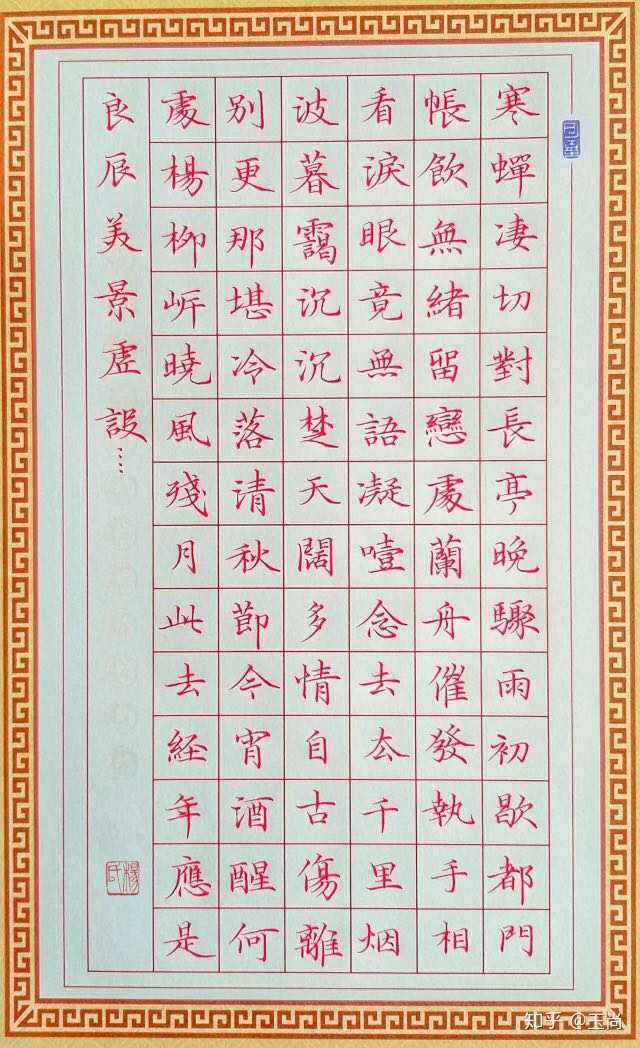 寒蟬凄切對長亭晚驟雨初歇都門
帳飲無緒留戀處蘭舟催發執手相
看淚眼竟無語凝噎念去厺千里烟
波暮靄沉沉楚天闊多情自古傷離
別更那堪冷落清秋節今宵酒醒何
處楊柳岸曉風殘月此去経年應是
良辰美景虛設……
楊氏
知乎 @玉尚